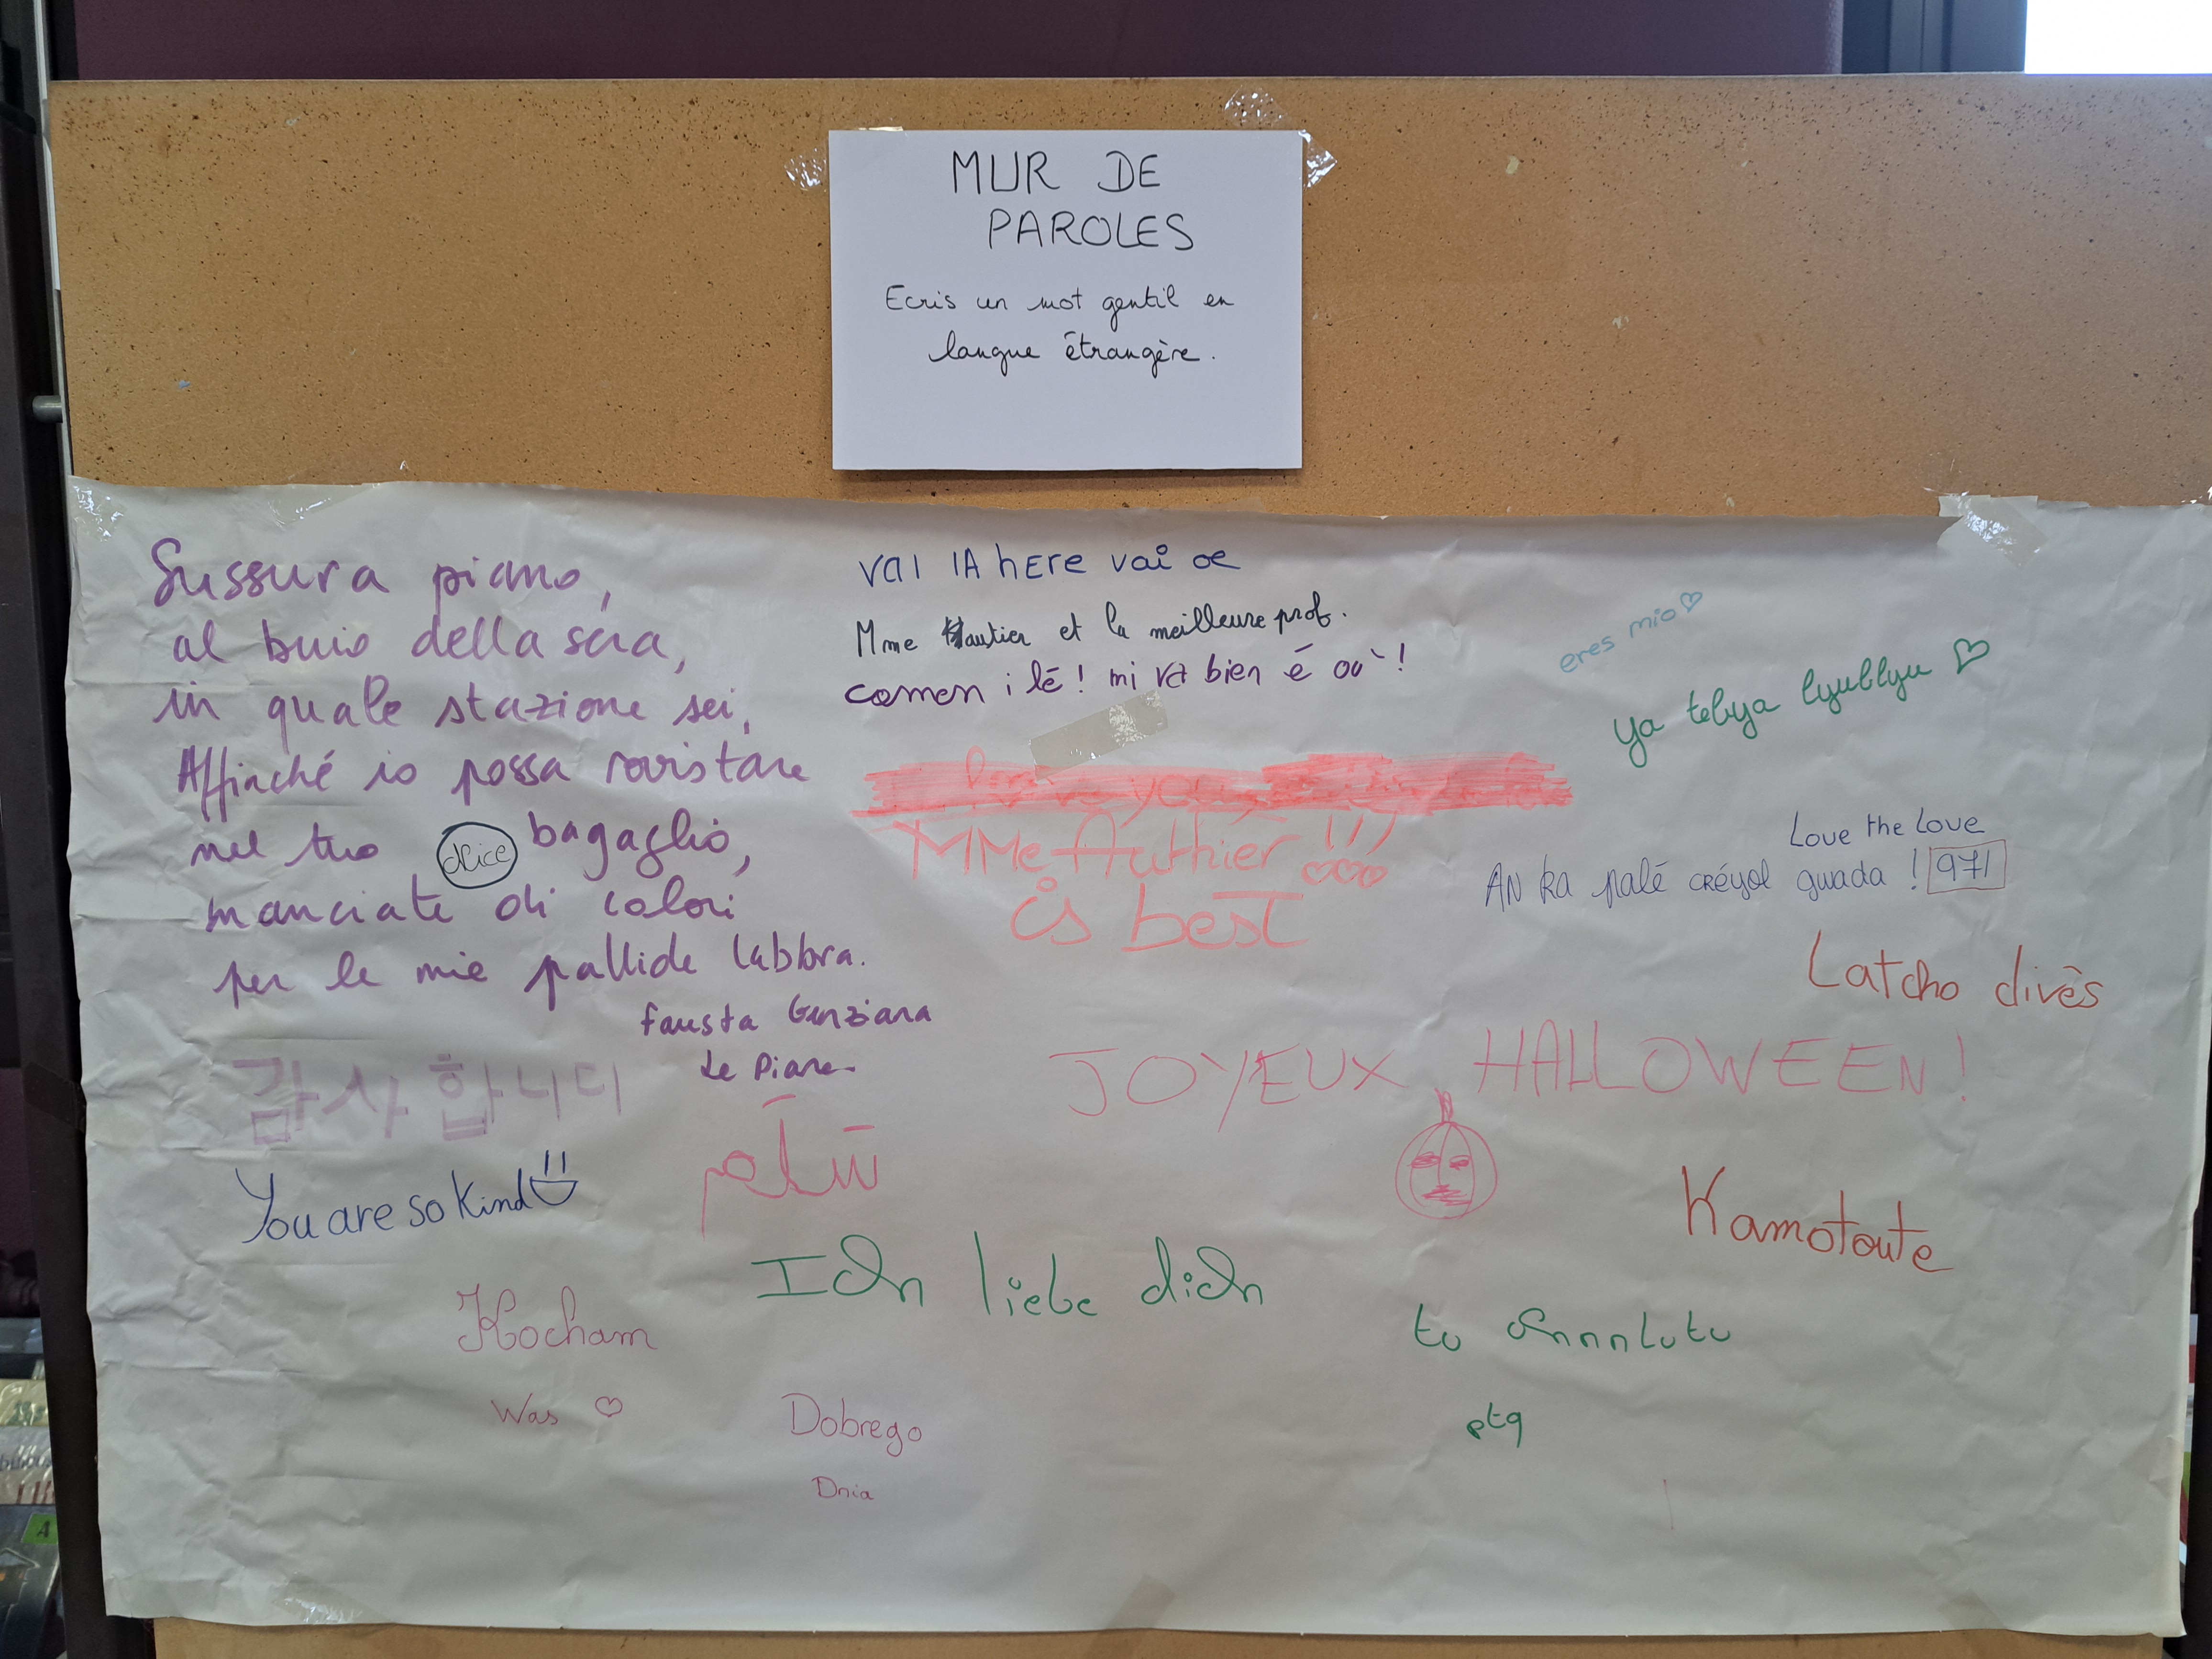 MUR DE
PAROLES
Ecris un mot gentil en
langue étrangère.
Sussura piano,
al buio della sera,
in quale stazione sei,
Affinché io possa rovistare
nel tuo bagaglio,
manciate di colori
per le mie pallide labbra.
Fausta Genziana
Le Piane
VAI IA hEre vai oe
Mme Hautier et la meilleure prof.
comen i lé ! mi va bien é ou !
eres mio
ya tebya lyublyu
MMe Authier !!!
is best
Love the Love
AN ka palé créyol gwada ! 971
Latcho divès
감사합니다
JOYEUX HALLOWEEN !
You are so Kind
Kamotoute
Ich liebe dich
Kocham
Was
Dobrego
Dnia
ptq